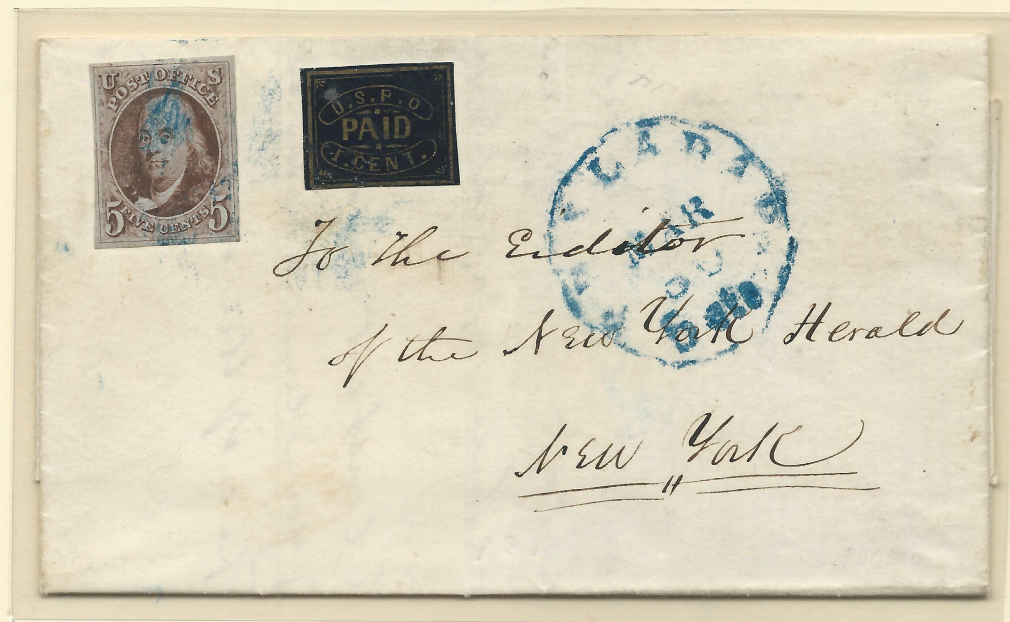 U S
POST OFFICE
5 FIVE CENTS 5
U.S.P.O
PAID
1.CENT.
LADA
MAR
30
To the Eiditor
of the New York Herald
New York